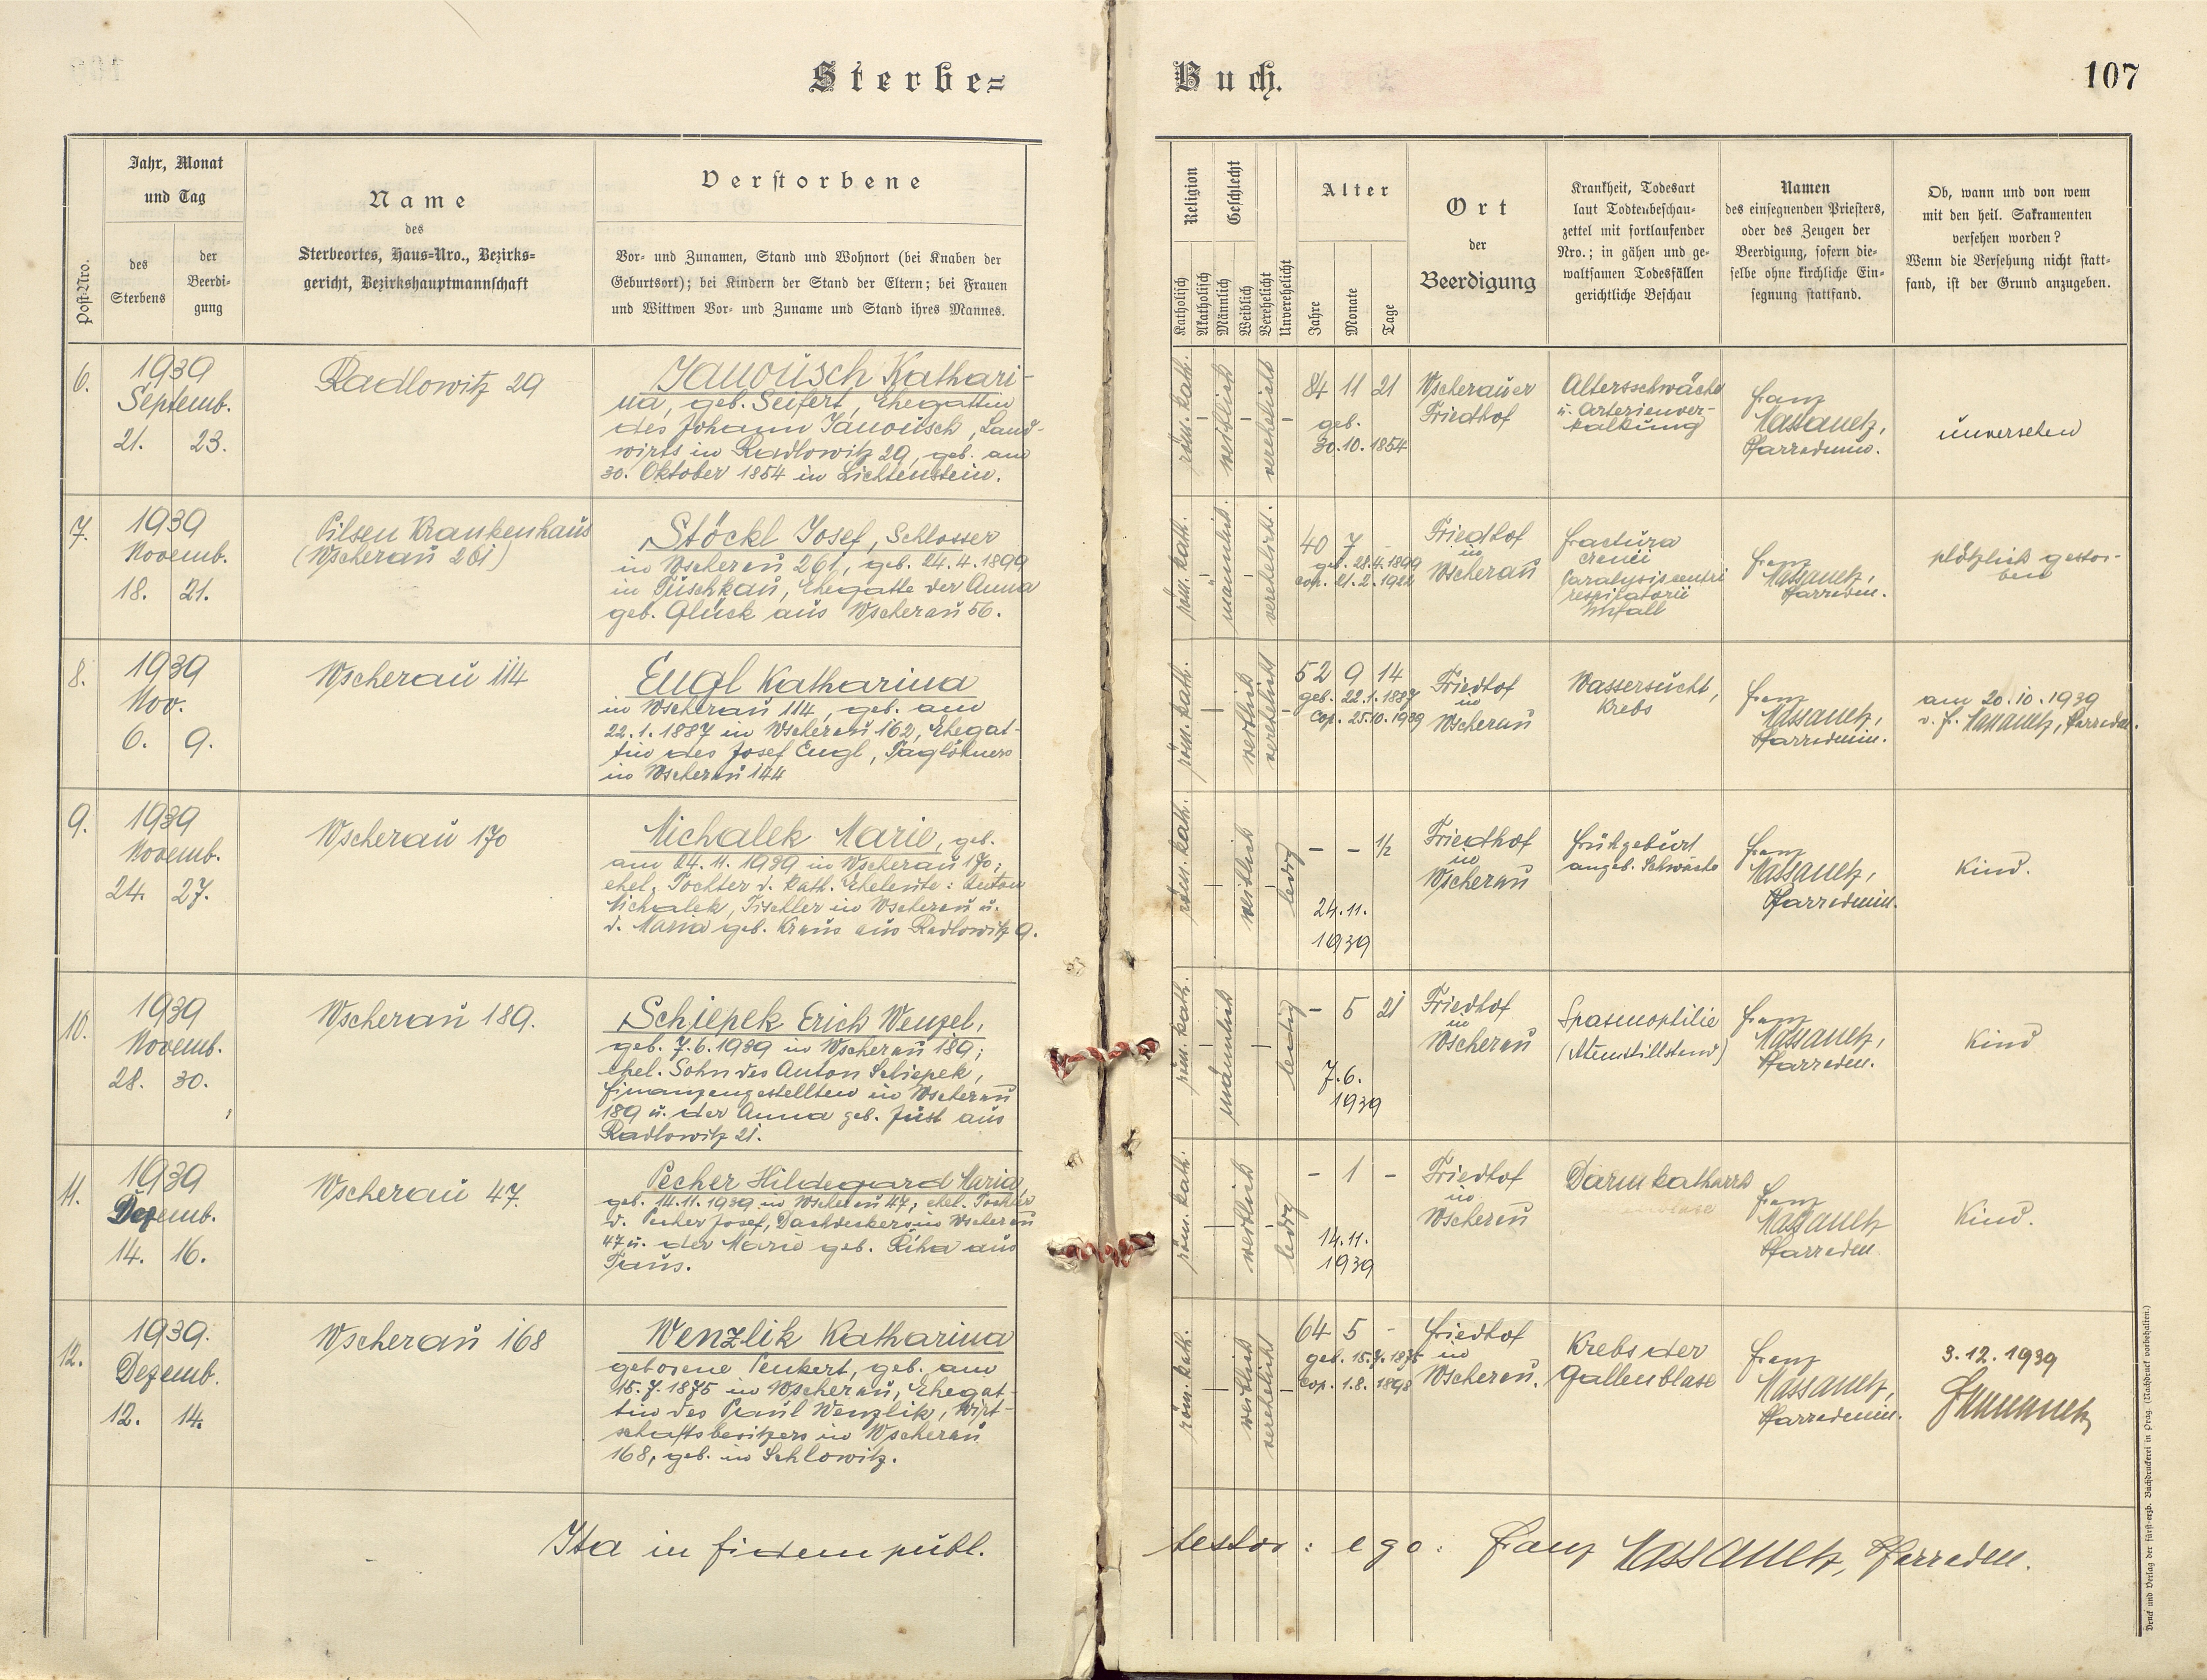 Sterbe-
Buch.
107
Post-Nro.
Jahr, Monat
und Tag
des
Sterbens
der
Beerdi-
gung
Name
des
Sterbeortes, Haus-Nro., Bezirks-
gericht, Bezirkshauptmannschaft
Verstorbene
Vor- und Zunamen, Stand und Wohnort (bei Knaben der
Geburtsort); bei Kindern der Stand der Eltern; bei Frauen
und Wittwen Vor- und Zuname und Stand ihres Mannes.
Religion
Katholisch
Akatholisch
Geschlecht
Männlich
Weiblich
Verehelicht
Unverehelicht
Alter
Jahre
Monate
Tage
Ort
der
Beerdigung
Krankheit, Todesart
laut Todtenbeschau-
zettel mit fortlaufender
Nro.; in gähen und ge-
waltsamen Todesfällen
gerichtliche Beschau
Namen
des einsegnenden Priesters,
oder des Zeugen der
Beerdigung, sofern die-
selbe ohne kirchliche Ein-
segnung stattfand.
Ob, wann und von wem
mit den heil. Sakramenten
versehen worden?
Wenn die Versehung nicht statt-
fand, ist der Grund anzugeben.
6.
1939
Septemb.
21. 23.
Radlowitz 29
Janousch Kathari-
na, geb. Seifert, Ehegattin
des Johann Janousch, Land-
wirts in Radlowitz 29, geb. am
30. Oktober 1854 in Lichtenstein.
röm. kath.
weiblich
verehelicht
84 11 21
geb.
30.10.1854
Wscherauer
Friedhof
Altersschwäche
u. Arterienver-
kalkung
Franz
Massanetz,
Pfarradmin.
unversehen
7.
1939
Novemb.
18. 21.
Pilsen Krankenhaus
(Wscherau 261)
Stöckl Josef, Schlosser
in Wscherau 261, geb. 24.4.1899
in Tuschkau, Ehegatte der Anna
geb. Glück aus Wscherau 56.
röm. kath.
männlich.
verehelicht.
40 7 -
geb. 28.4.1899
cop. 21.2.1922
Friedhof
in
Wscherau
fractura
cranii
Paralysis centri
respiratorii
Unfall
Franz
Massanetz,
Pfarradm.
plötzlich gestor-
ben
8.
1939
Nov.
6. 9.
Wscherau 114
Engl Katharina
in Wscherau 114, geb. am
22.1.1887 in Wscherau 162, Ehegat-
tin des Josef Engl, Taglöhners
in Wscherau 144
röm. kath.
weiblich
verehelicht
52 9 14
geb. 22.1.1887
Cop. 25.10.1939
Friedhof
in
Wscherau
Wassersucht,
Krebs
Franz
Massanetz,
Pfarradmin.
am 20.10.1939
v. F. Massanetz, Pfarradm.
9.
1939
Novemb.
24. 27.
Wscherau 170
Michalek Marie, geb.
am 24.11.1939 in Wscherau 170;
ehel. Tochter d. kath. Eheleute: Anton
Michalek, Tischler in Wscherau u.
d. Maria geb. Kraus aus Radlowitz 9.
röm. kath.
weiblich
ledig
- - ½
24.11.
1939
Friedhof
in
Wscherau
Frühgeburt
angeb. Schwäche
Franz
Massanetz,
Pfarradmin.
Kind.
10.
1939
Novemb.
28. 30.
Wscherau 189.
Schiepek Erich Wenzel,
geb. 7.6.1939 in Wscherau 189;
ehel. Sohn des Anton Schiepek,
Finanzangestellten in Wscherau
189 u. der Anna geb. Just aus
Radlowitz 21.
röm. kath.
männlich
ledig
- 5 21
7.6.
1939
Friedhof
in
Wscherau
Spasmophilie
(Atemstillstand)
Franz
Massanetz,
Pfarradm.
Kind
11.
1939
Dezemb.
14. 16.
Wscherau 47.
Pecher Hildegard Maria,
geb. 14.11.1939 in Wscherau 47, ehel. Tochter
d. Pecher Josef, Dachdeckers in Wscherau
47 u. der Marie geb. Riha aus
Taus.
röm. kath.
weiblich
ledig
- 1 -
14.11.
1939
Friedhof
in
Wscherau
Darmkatharrh
Franz
Massanetz
Pfarradm.
Kind.
12.
1939.
Dezemb.
12. 14.
Wscherau 168
Wenzlik Katharina
geborene Penkert, geb. am
15.7.1875 in Wscherau, Ehegat-
tin des Paul Wenzlik, Wirt-
schaftsbesitzers in Wscherau
168, geb. in Schlowitz.
röm. kath.
weiblich
verehelicht
64 5 -
geb. 15.7.1875
Cop. 1.8.1898
Friedhof
in
Wscherau.
Krebs der
Gallenblase
Franz
Massanetz,
Pfarradmin.
3.12.1939
FMassanetz
Ita in fidem publ.
testor: ego: Franz Massanetz, Pfarradm.
Druck und Verlag der fürst-erzb. Buchdruckerei in Prag. (Nachdruck vorbehalten.)